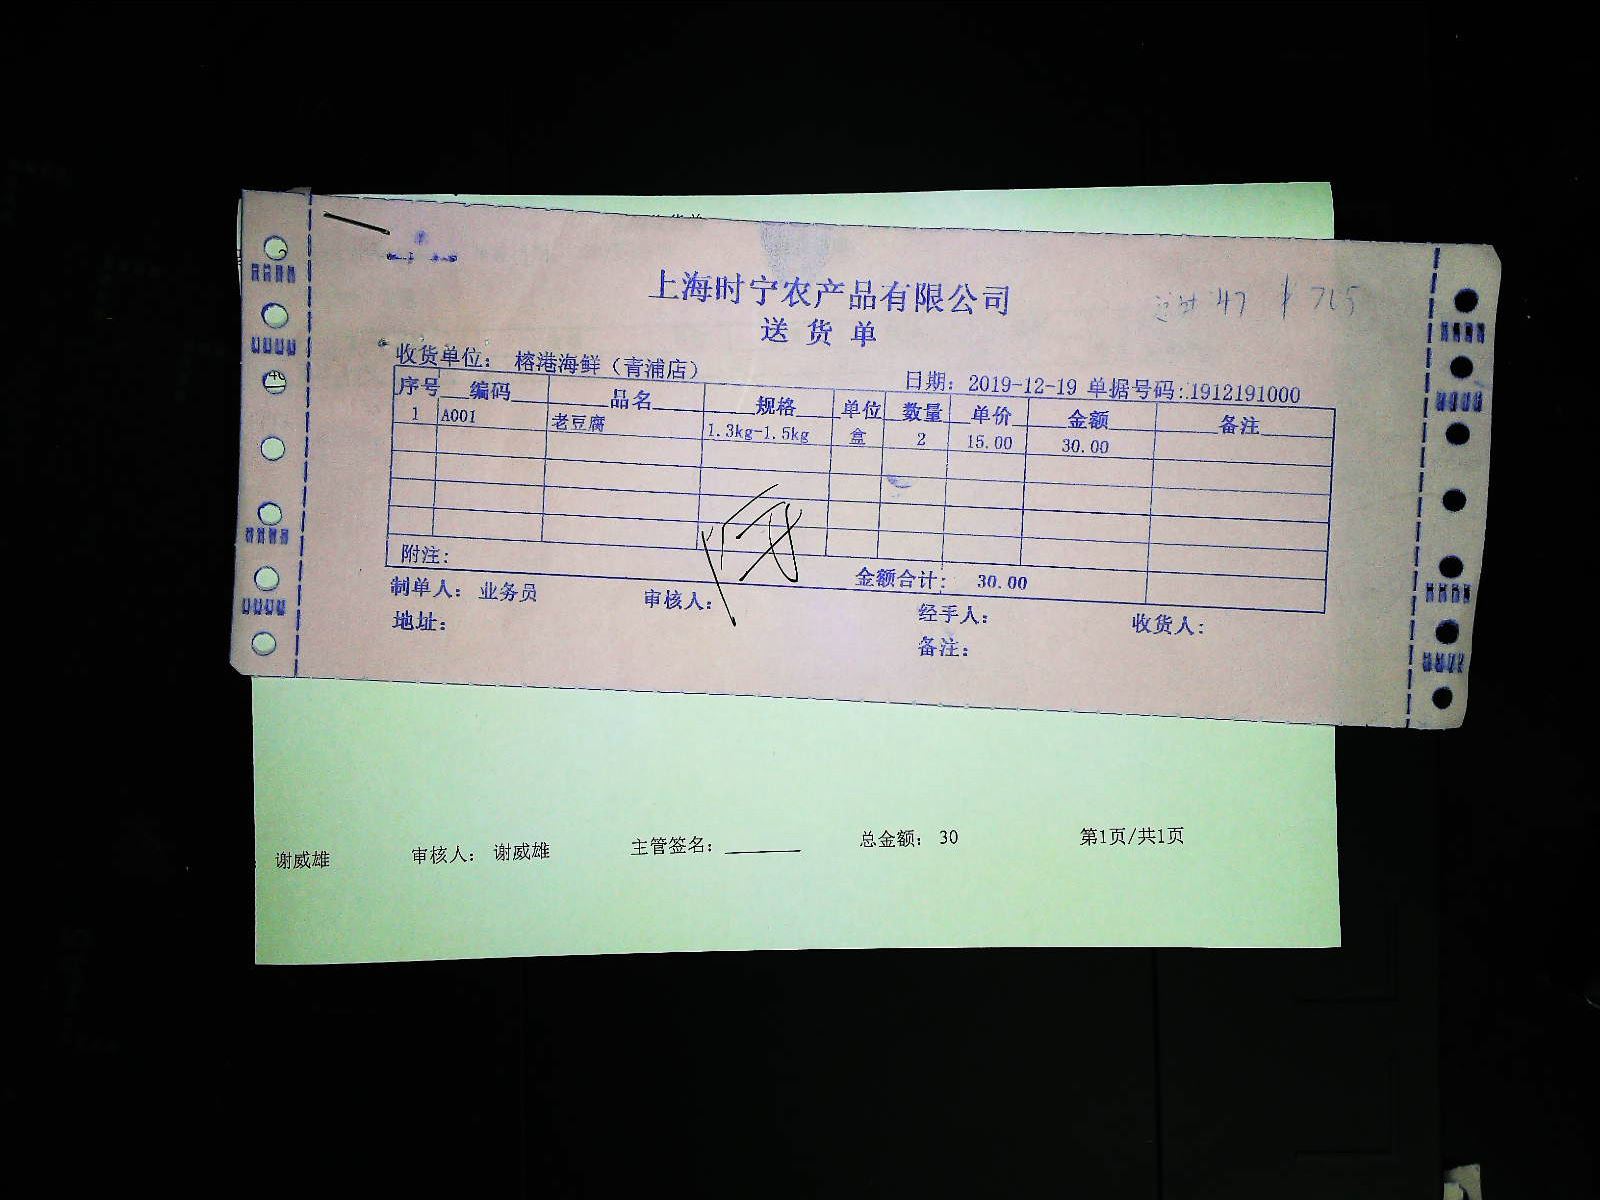 上海时宁农产品有限公司
送货单
47 1 765
收货单位：榕港海鲜（青浦店）
日期：2019-12-19 单据号码：1912191000
序号 编码 品名 规格 单位 数量 单价 金额 备注
1 A001 老豆腐 1.3kg-1.5kg 盒 2 15.00 30.00
附注：
金额合计： 30.00
制单人：业务员 审核人： 经手人： 收货人：
地址：
备注：
谢威雄 审核人：谢威雄 主管签名：________ 总金额：30 第1页/共1页